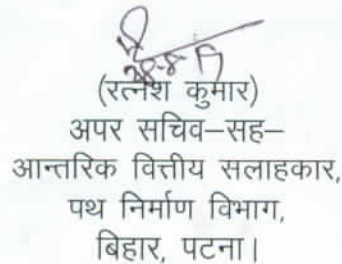 28-8-17
(रत्नेश कुमार)
अपर सचिव–सह–
आन्तरिक वित्तीय सलाहकार,
पथ निर्माण विभाग,
बिहार, पटना।